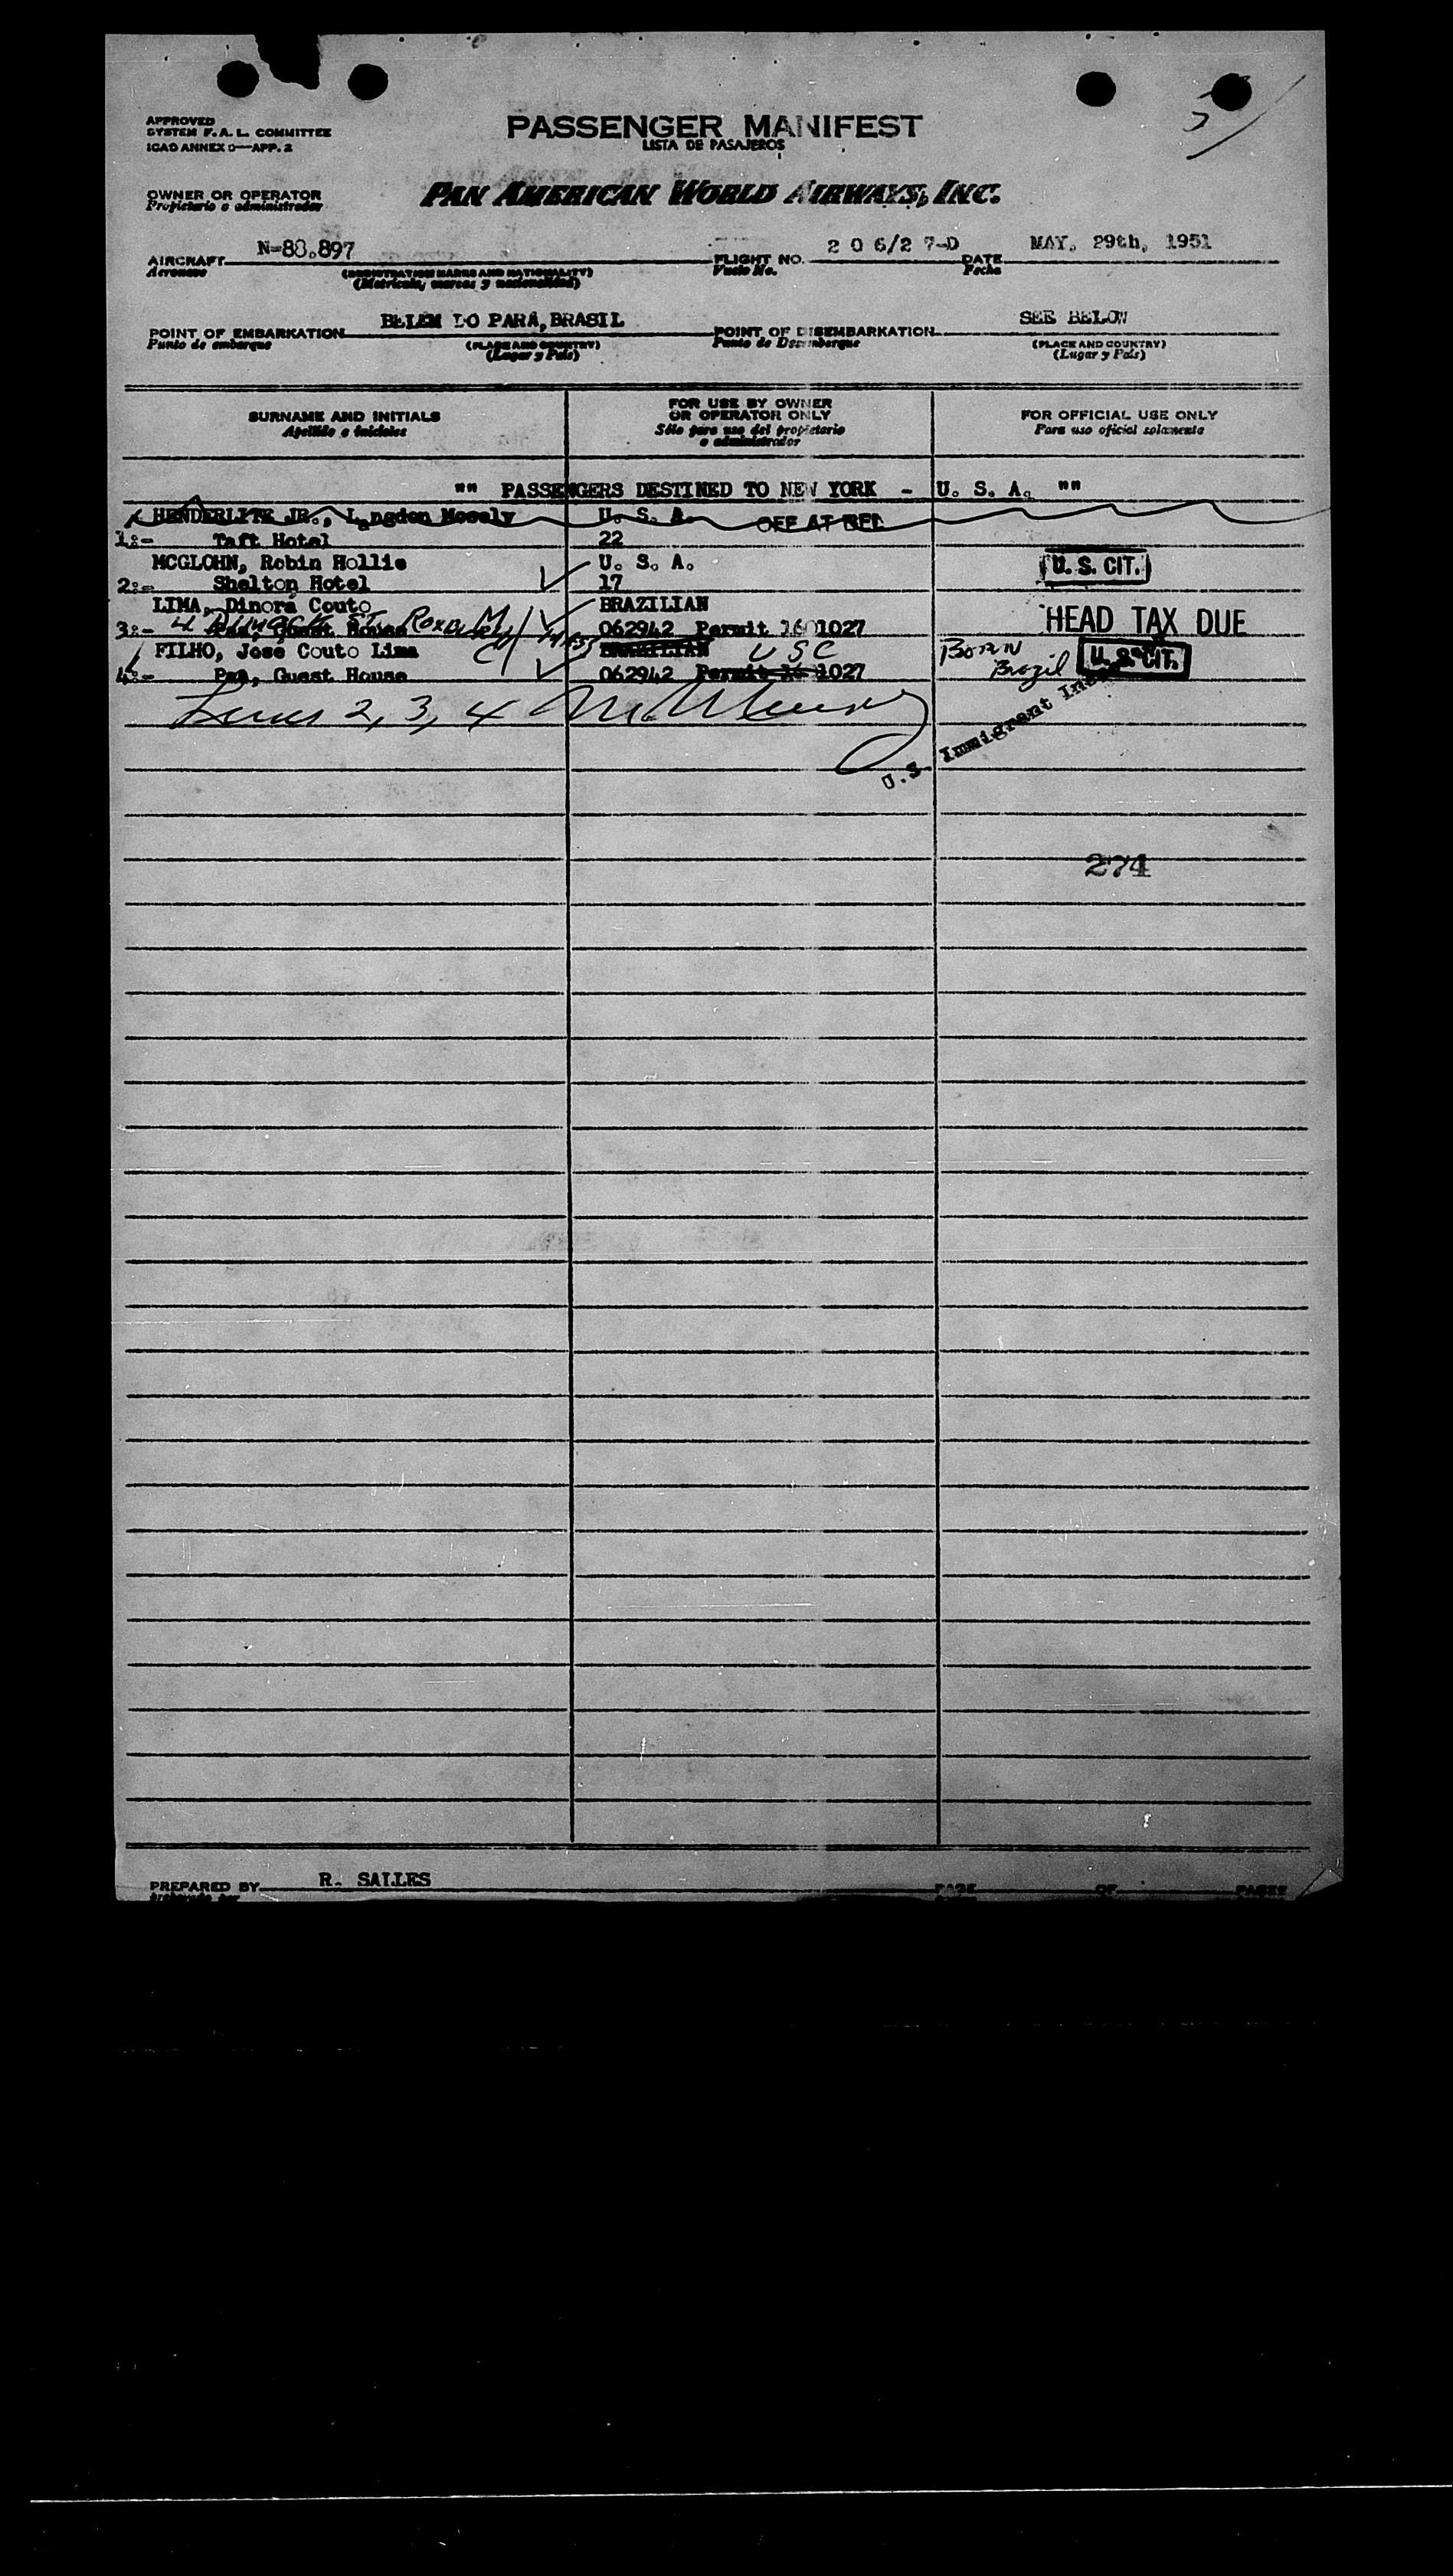 APPROVED
SYSTEM F.A.L. COMMITTEE
ICAO ANNEX 9—APP. 2
PASSENGER MANIFEST
LISTA DE PASAJEROS
OWNER OR OPERATOR
Propietario o administrador
PAN AMERICAN WORLD AIRWAYS, INC.
AIRCRAFT N-88.897
Aeronave
(REGISTRATION MARKS AND NATIONALITY)
(Matrícula, marcas y nacionalidad)
FLIGHT NO. 2 0 6/2 7-D
Vuelo No.
DATE MAY. 29th, 1951
Fecha
POINT OF EMBARKATION BELEM DO PARA, BRASIL
Punto de embarque
(PLACE AND COUNTRY)
(Lugar y País)
POINT OF DISEMBARKATION SEE BELOW
Punto de Desembarque
(PLACE AND COUNTRY)
(Lugar y País)
SURNAME AND INITIALS
Apellido e iniciales
FOR USE BY OWNER
OR OPERATOR ONLY
Sólo para uso del propietario
o administrador
FOR OFFICIAL USE ONLY
Para uso oficial solamente
"" PASSENGERS DESTINED TO NEW YORK - U. S. A. ""
HENDERLITE JR., Langdon Mosely U. S. A. OFF AT BEL
1:- Taft Hotel 22
MCGLOHN, Robin Hollie U. S. A. U. S. CIT.
2:- Shelton Hotel 17
LIMA, Dinorá Couto BRAZILIAN
3:- Paa, Guest House 062942 Permit 1601027 HEAD TAX DUE
FILHO, José Couto Lima BRAZILIAN USC Born Brazil U. S. CIT.
4:- Paa, Guest House 062942 Permit 1027
Lines 2, 3, 4
U.S. Immigrant
274
PREPARED BY R. SALLES
PAGE OF PAGES